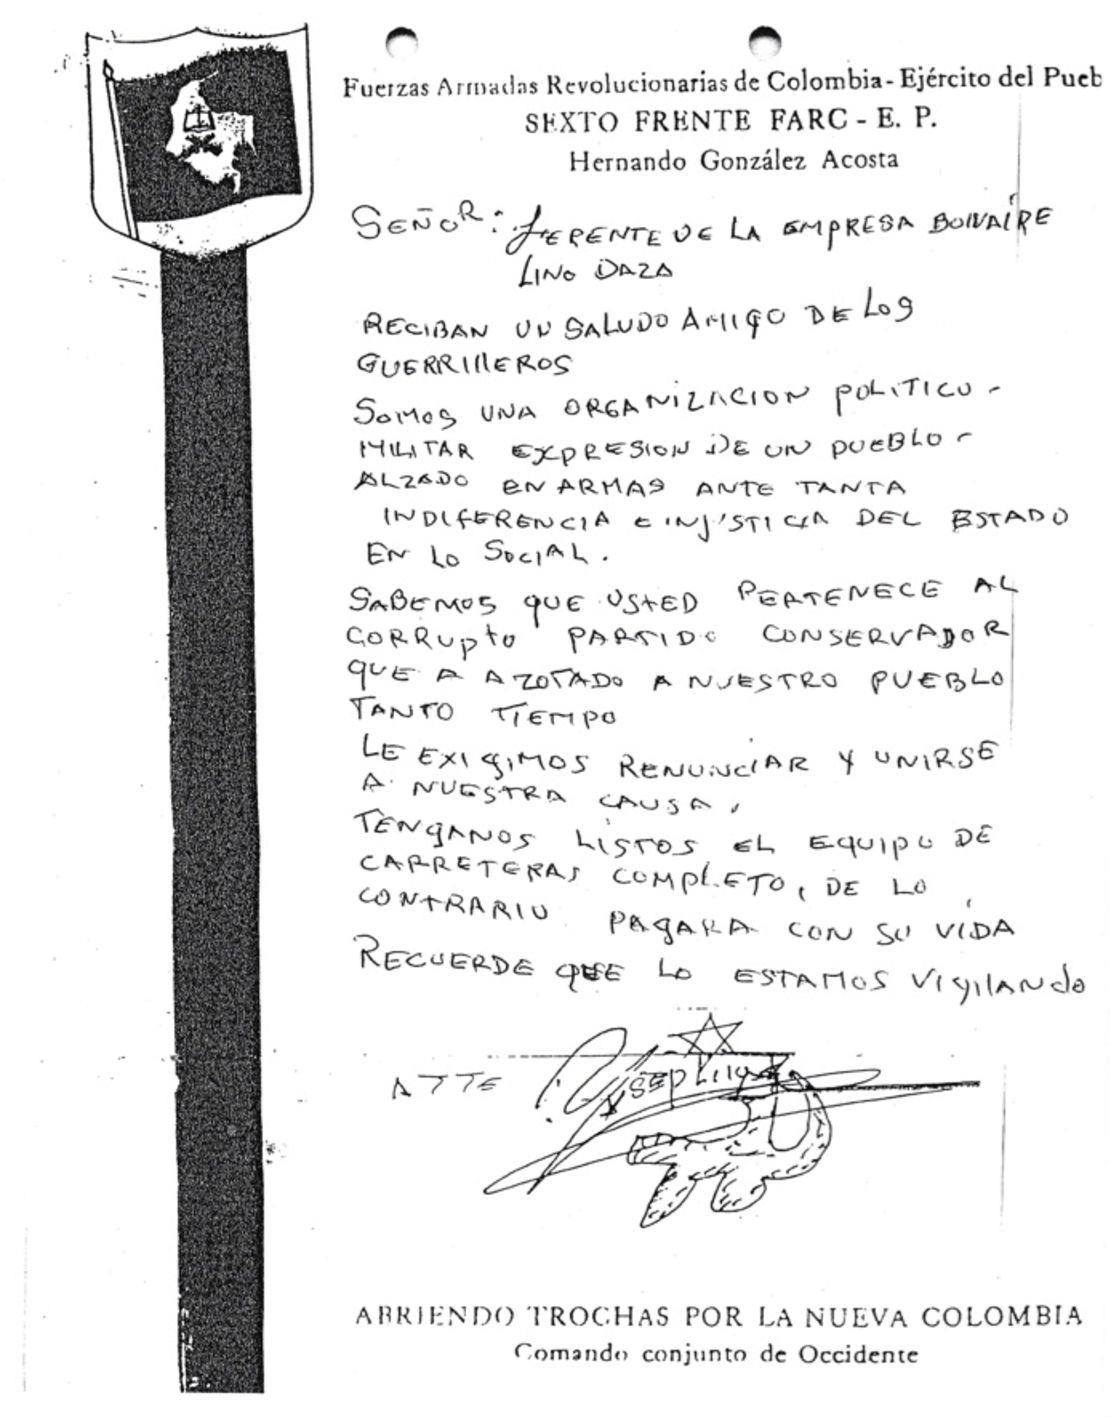 Fuerzas Armadas Revolucionarias de Colombia - Ejército del Pueb
SEXTO FRENTE FARC - E. P.
Hernando González Acosta
SEÑOR: GERENTE DE LA EMPRESA BONAIRE
LINO DAZA
RECIBAN UN SALUDO AMIGO DE LOS
GUERRILLEROS
SOMOS UNA ORGANIZACION POLITICO -
MILITAR EXPRESION DE UN PUEBLO -
ALZADO EN ARMAS ANTE TANTA
INDIFERENCIA E INJUSTICIA DEL ESTADO
EN LO SOCIAL.
SABEMOS QUE USTED PERTENECE AL
CORRUPTO PARTIDO CONSERVADOR
QUE A AZOTADO A NUESTRO PUEBLO
TANTO TIEMPO
LE EXIGIMOS RENUNCIAR Y UNIRSE
A NUESTRA CAUSA,
TENGANOS LISTOS EL EQUIPO DE
CARRETERAS COMPLETO, DE LO
CONTRARIO PAGARA CON SU VIDA
RECUERDE QUE LO ESTAMOS VIGILANDO
ATTE
ABRIENDO TROCHAS POR LA NUEVA COLOMBIA
Comando conjunto de Occidente